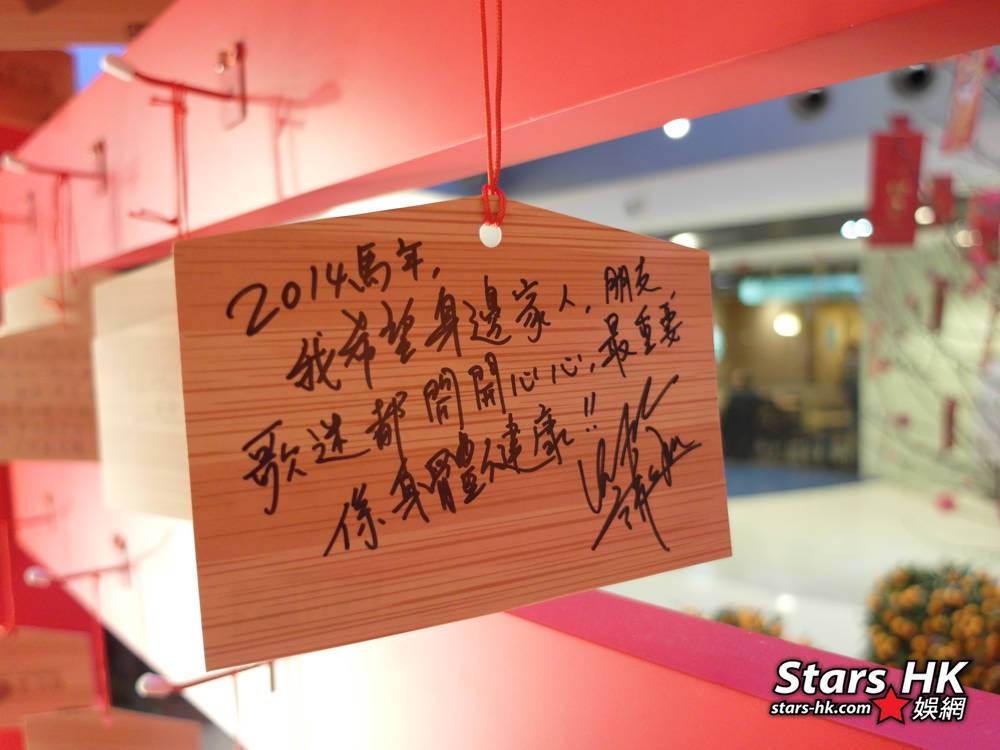 2014馬年,
我希望身邊家人,朋友,
歌迷都開開心心,最重要
係身體健康!!
Stars HK
stars-hk.com 娛網